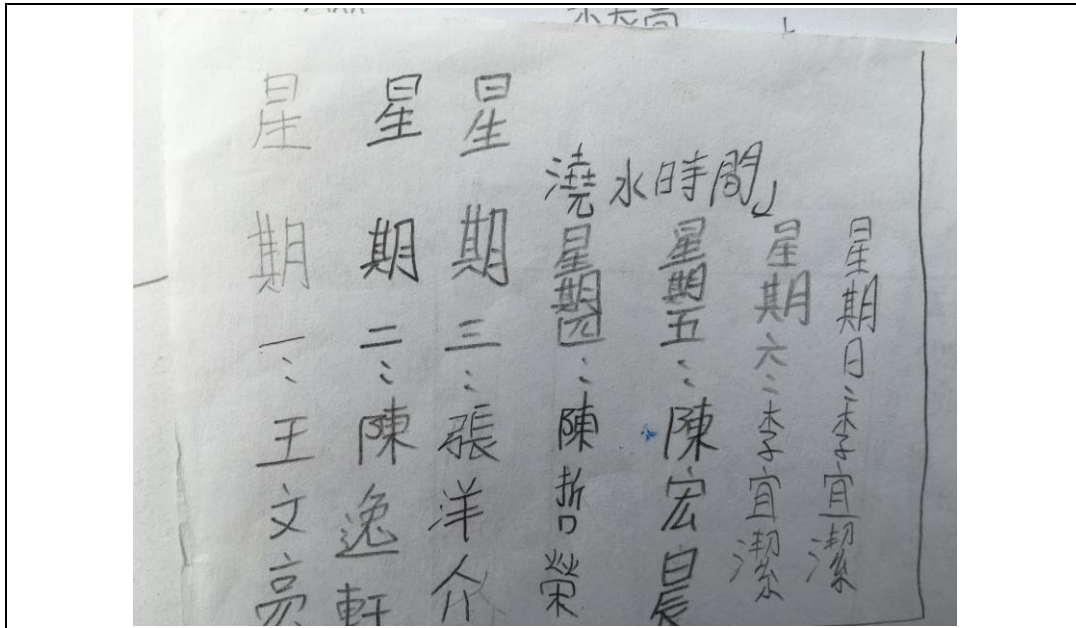 澆水時間
星期一：王文亮
星期二：陳逸軒
星期三：張洋介
星期四：陳哲榮
星期五：陳宏晨
星期六：李宜潔
星期日：李宜潔